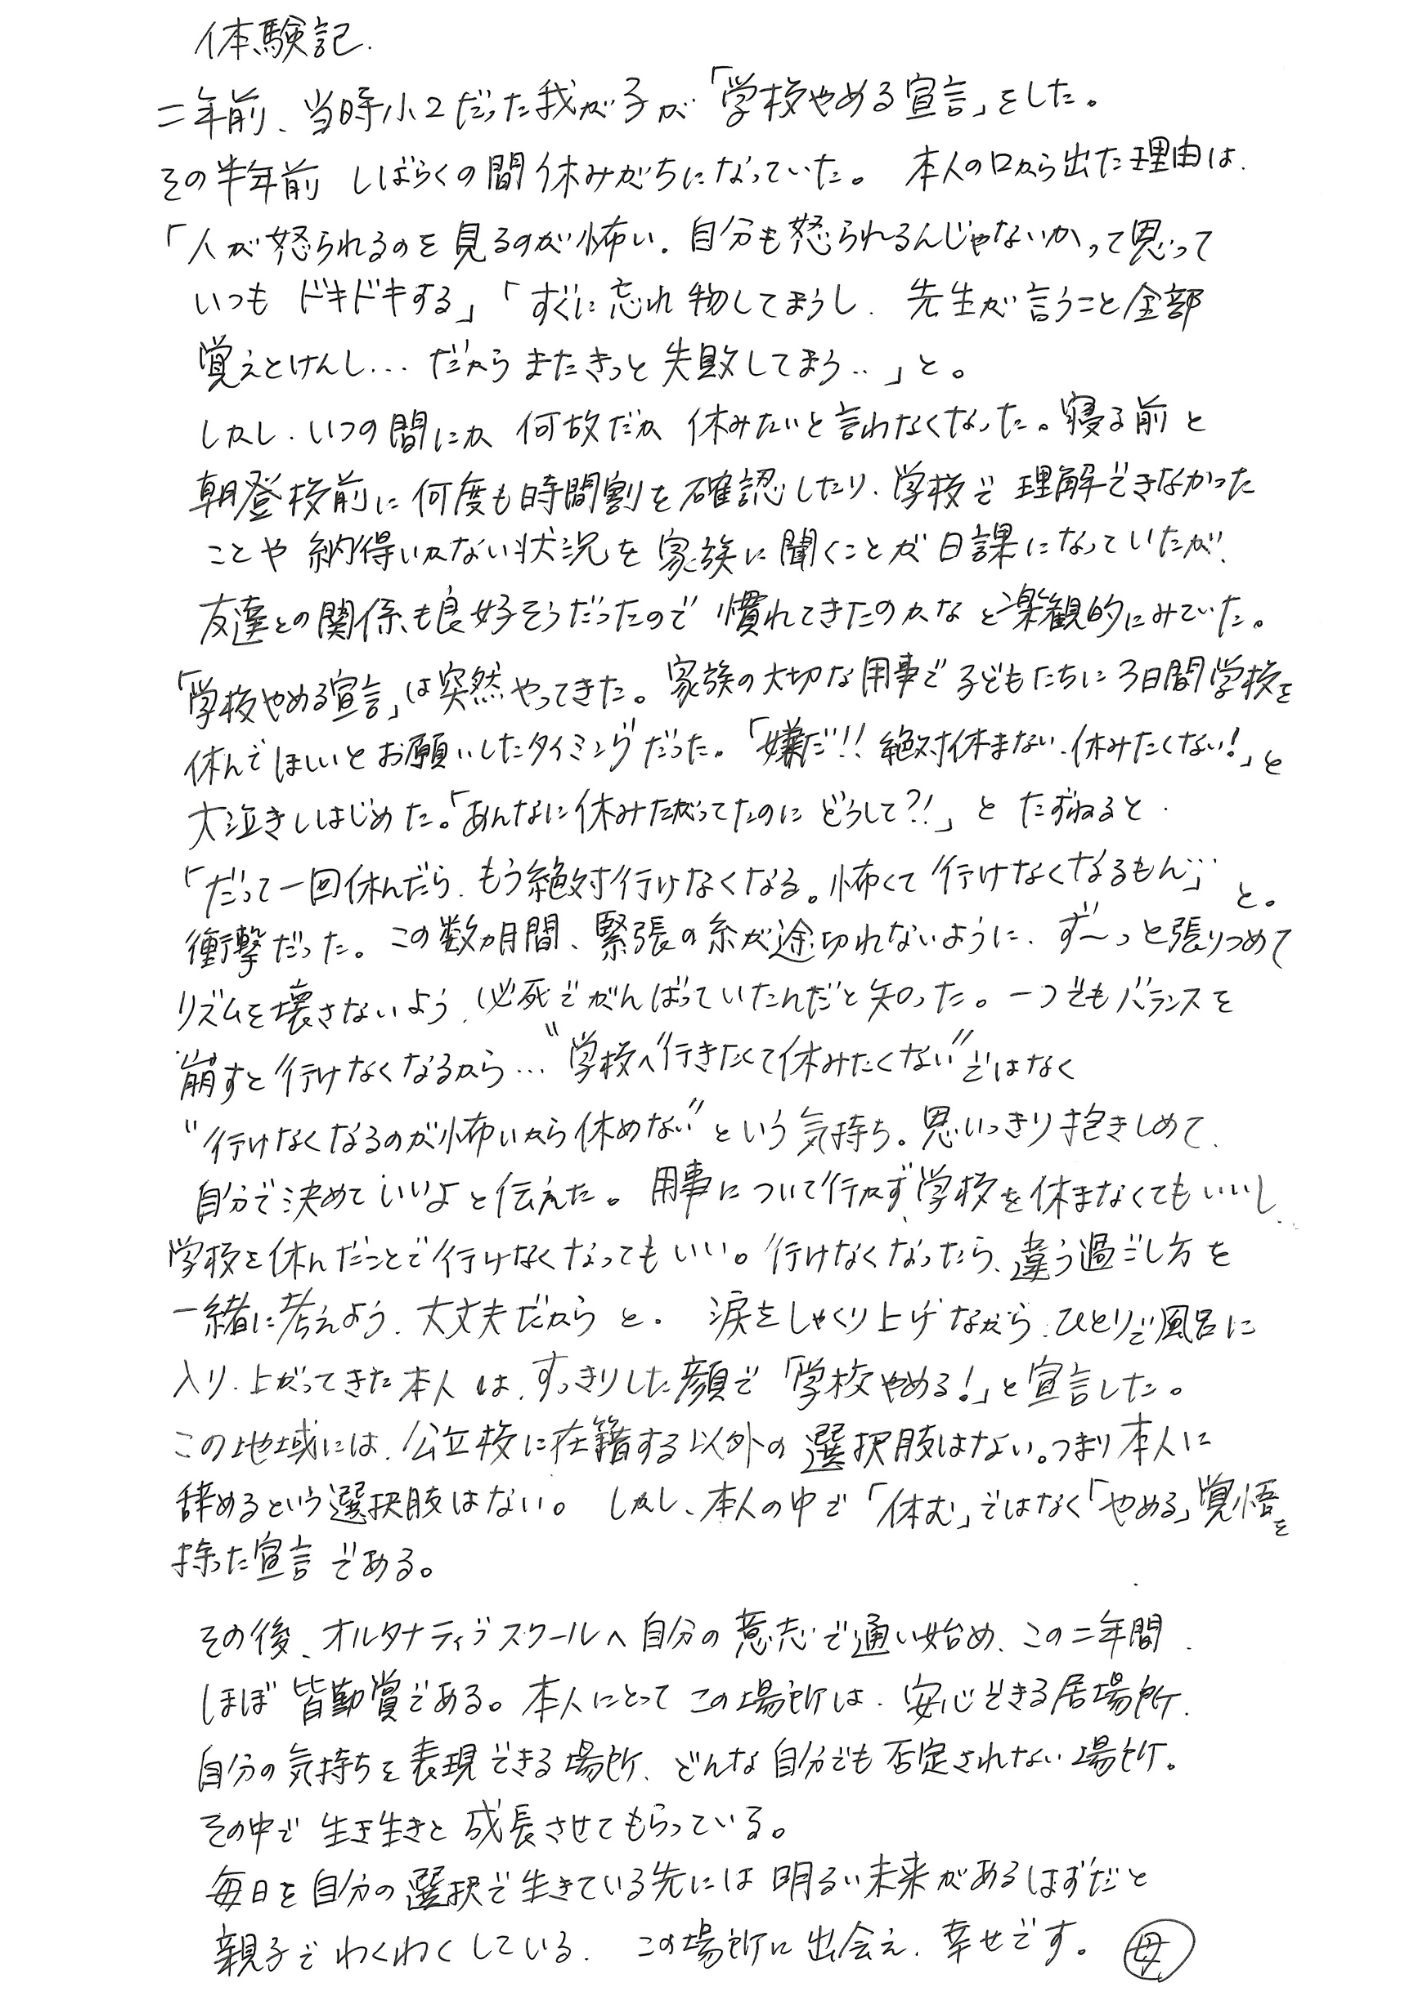 体験記.
二年前、当時小2だった我が子が「学校やめる宣言」をした。
その半年前 しばらくの間休みがちになっていた。 本人の口から出た理由は、
「人が怒られるのを見るのが怖い。自分も怒られるんじゃないかって思って
いつも ドキドキする」「すぐに忘れ物してまうし、先生が言うこと全部
覚えとけんし... だからまたきっと失敗してまう..」と。
しかし、いつの間にか 何故だか 休みたいと言わなくなった。寝る前と
朝登校前に何度も時間割を確認したり、学校で理解できなかった
ことや 納得いかない状況を 家族に聞くことが日課になっていたが、
友達との関係も良好そうだったので 慣れてきたのかなと楽観的にみていた。
「学校やめる宣言」は突然やってきた。家族の大切な用事で子どもたちに3日間学校を
休んでほしいとお願いしたタイミングだった。「嫌だ!!絶対休まない、休みたくない!」と
大泣きしはじめた。「あんなに休みたがってたのにどうして?!」と たずねると、
「だって一回休んだら、もう絶対行けなくなる。怖くて行けなくなるもん...」と。
衝撃だった。この数カ月間、緊張の糸が途切れないように、ず〜っと張りつめて
リズムを壊さないよう、必死でがんばっていたんだと知った。一つでもバランスを
崩すと行けなくなるから... “学校へ行きたくて休みたくない”ではなく
“行けなくなるのが怖いから休めない”という気持ち。思いっきり抱きしめて、
自分で決めていいよと伝えた。用事について行かず、学校を休まなくてもいいし、
学校を休んだことで行けなくなってもいい。行けなくなったら、違う過ごし方を
一緒に考えよう、大丈夫だからと。 涙をしゃくり上げながら、ひとりで風呂に
入り、上がってきた本人は、すっきりした顔で「学校やめる!」と宣言した。
この地域には、公立校に在籍する以外の選択肢はない。つまり本人に
辞めるという選択肢はない。しかし、本人の中で「休む」ではなく「やめる」覚悟を
持った宣言である。
その後、オルタナティブスクールへ自分の意志で通い始め、この二年間、
ほぼ皆勤賞である。本人にとってこの場所は、安心できる居場所、
自分の気持ちを表現できる場所、どんな自分でも否定されない場所。
その中で 生き生きと成長させてもらっている。
毎日を自分の選択で生きている先には明るい未来があるはずだと
親子でわくわくしている。 この場所に出会え、幸せです。 母